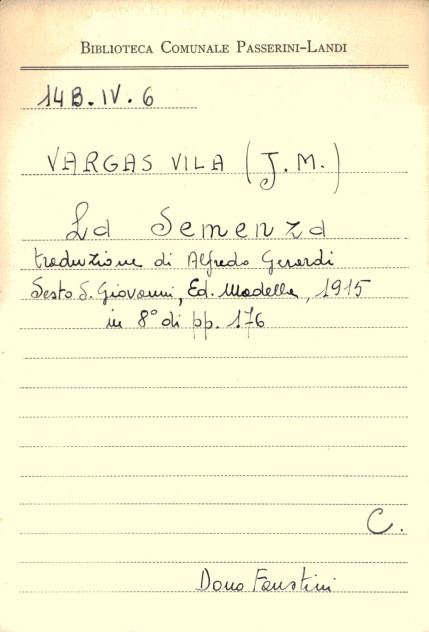 BIBLIOTECA COMUNALE PASSERINI-LANDI
14B.IV.6
VARGAS VILA (J.M.)
La Semenza
traduzione di Alfredo Gerardi
Sesto S. Giovanni, Ed. Madella, 1915
in 8° di pp. 176
C.
Dono Faustini